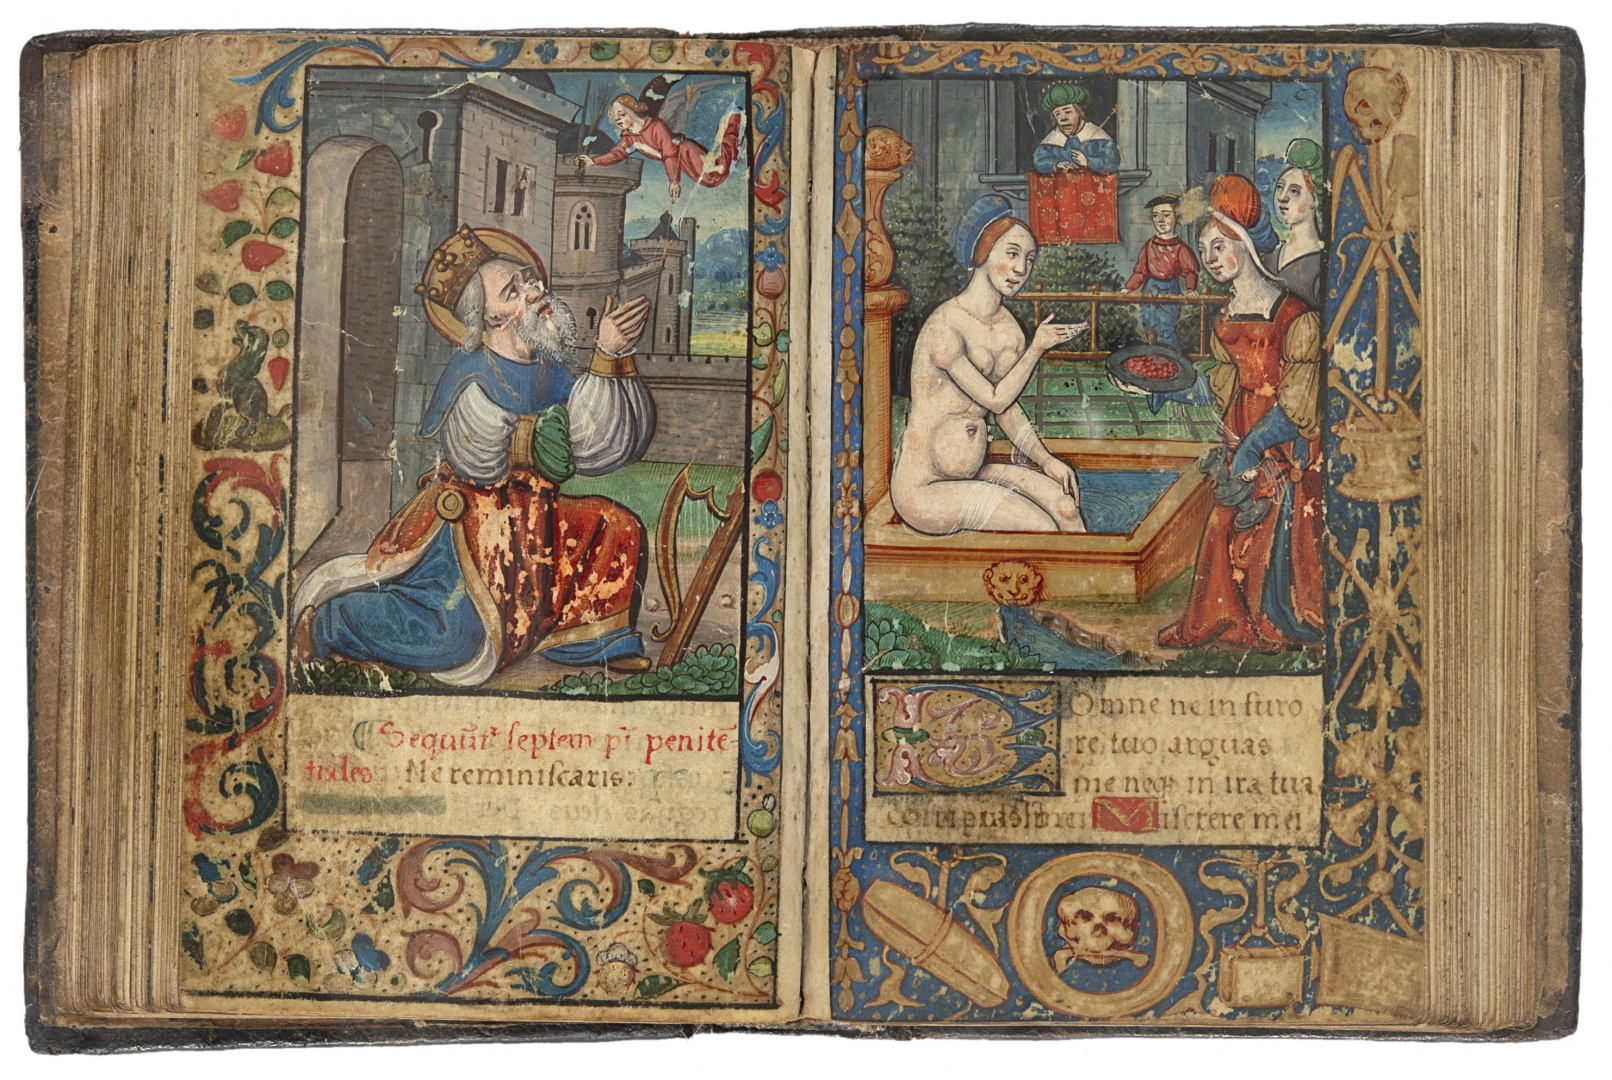 Sequūtʳ septem pī penitē-
tiales Ne reminiscaris:
Domne ne in furo
re tuo arguas
me neqꝫ in ira tua
corripias Miserere mei